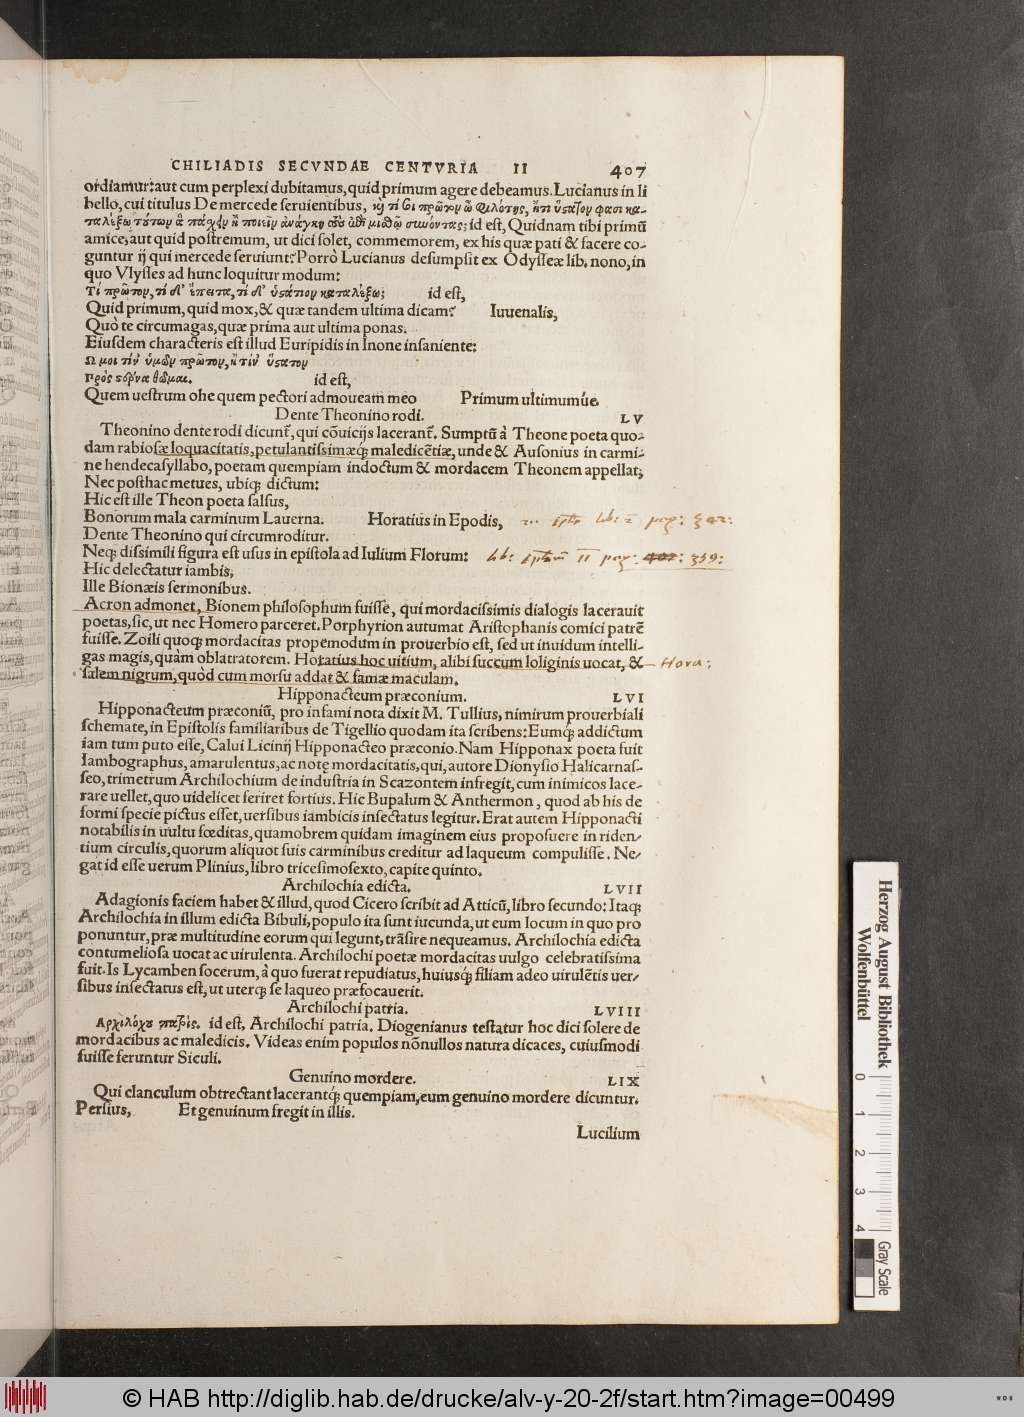 CHILIADIS SECVNDAE CENTVRIA II 407
ordiamur: aut cum perplexi dubitamus, quid primum agere debeamus. Lucianus in li
bello, cui titulus De mercede seruientibus, καὶ τί σοι πρῶτον ὦ φιλότης, ἢ τί ὕστατον φασι κα-
ταλέξω τούτων ἃ πάσχειν ἢ ποιεῖν ἀνάγκη τοὺς ἐπὶ μισθῷ συνόντας; id est, Quidnam tibi primū
amice, aut quid postremum, ut dici solet, commemorem, ex his quæ pati & facere co-
guntur ij qui mercede seruiunt? Porrò Lucianus desumpsit ex Odysseæ lib. nono, in
quo Vlysses ad hunc loquitur modum:
Τί πρῶτον, τί δ' ἔπειτα, τί δ' ὑστάτιον καταλέξω; id est,
Quid primum, quid mox, & quæ tandem ultima dicam? Iuuenalis,
Quò te circumagas, quæ prima aut ultima ponas.
Eiusdem characteris est illud Euripidis in Inone insaniente:
Ω μοι τίν' ὑμῶν πρῶτον, ἢ τίν' ὕστατον
Πρὸς στέρνα θῶμαι. id est,
Quem uestrum ohe quem pectori admoueam meo Primum ultimumúe.
Dente Theonino rodi. LV
Theonino dente rodi dicunt᷑, qui cōuicijs lacerant᷑. Sumptū à Theone poeta quo-
dam rabiosæ loquacitatis, petulantissimæq́; maledicētiæ, unde & Ausonius in carmi-
ne hendecasyllabo, poetam quempiam indoctum & mordacem Theonem appellat;
Nec posthac metues, ubiq; dictum:
Hic est ille Theon poeta falsus,
Bonorum mala carminum Lauerna. Horatius in Epodis,
Dente Theonino qui circumroditur.
Neq; dissimili figura est usus in epistola ad Iulium Florum: lib: II pag: 359:
Hic delectatur iambis,
Ille Bionæis sermonibus.
Acron admonet, Bionem philosophum fuisse, qui mordacissimis dialogis lacerauit
poetas, sic, ut nec Homero parceret. Porphyrion autumat Aristophanis comici patrē
fuisse. Zoili quoq; mordacitas propemodum in prouerbio est, sed ut inuidum intelli-
gas magis, quàm oblatratorem. Horatius hoc uitium, alibi succum loliginis uocat, & Hora:
salem nigrum, quòd cum morsu addat & famæ maculam.
Hipponacteum præconium. LVI
Hipponacteum præconiū, pro infami nota dixit M. Tullius, nimirum prouerbiali
schemate, in Epistolis familiaribus de Tigellio quodam ita scribens: Eumq́; addictum
iam tum puto esse, Calui Licinij Hipponacteo præconio. Nam Hipponax poeta fuit
Iambographus, amarulentus, ac notę mordacitatis, qui, autore Dionysio Halicarnas-
seo, trimetrum Archilochium de industria in Scazontem infregit, cum inimicos lace-
rare uellet, quo uidelicet feriret fortius. Hic Bupalum & Anthermon, quod ab his de
formi specie pictus esset, uersibus iambicis insectatus legitur. Erat autem Hipponacti
notabilis in uultu fœditas, quamobrem quidam imaginem eius proposuere in riden-
tium circulis, quorum aliquot suis carminibus creditur ad laqueum compulisse. Ne-
gat id esse uerum Plinius, libro tricesimosexto, capite quinto.
Archilochia edicta. LVII
Adagionis faciem habet & illud, quod Cicero scribit ad Atticū, libro secundo: Itaq;
Archilochia in illum edicta Bibuli, populo ita sunt iucunda, ut eum locum in quo pro
ponuntur, præ multitudine eorum qui legunt, trāsire nequeamus. Archilochia edicta
contumeliosa uocat ac uirulenta. Archilochi poetæ mordacitas uulgo celebratissima
fuit. Is Lycamben socerum, à quo fuerat repudiatus, huiusq́; filiam adeo uirulētis uer-
sibus insectatus est, ut uterq; se laqueo præfocauerit.
Archilochi patria. LVIII
Αρχιλόχου πατρίς. id est, Archilochi patria. Diogenianus testatur hoc dici solere de
mordacibus ac maledicis. Videas enim populos nōnullos natura dicaces, cuiusmodi
fuisse feruntur Siculi.
Genuino mordere. LIX
Qui clanculum obtrectant lacerantq́; quempiam, eum genuino mordere dicuntur.
Persius, Et genuinum fregit in illis.
Lucilium
Herzog August Bibliothek
Wolfenbüttel
0 1 2 3 4
Gray Scale
© HAB http://diglib.hab.de/drucke/alv-y-20-2f/start.htm?image=00499